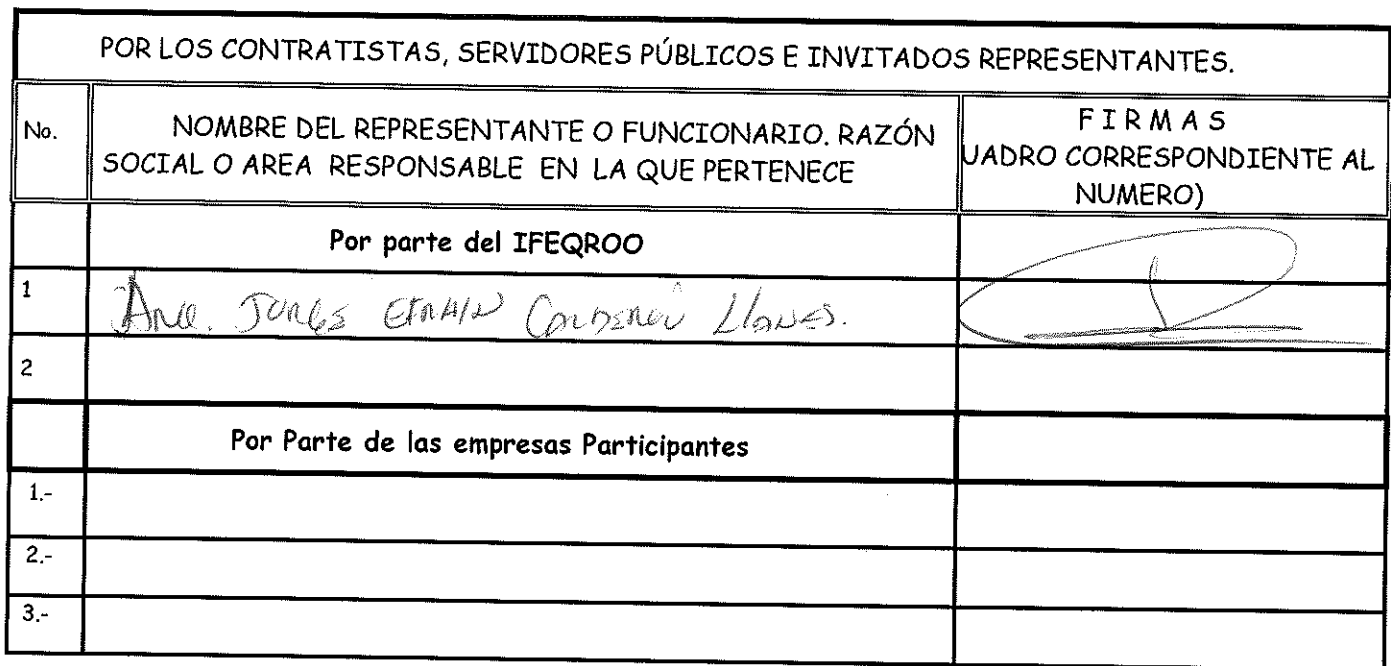 POR LOS CONTRATISTAS, SERVIDORES PÚBLICOS E INVITADOS REPRESENTANTES.
No.
NOMBRE DEL REPRESENTANTE O FUNCIONARIO. RAZÓN
SOCIAL O AREA RESPONSABLE EN LA QUE PERTENECE
FIRMAS
UADRO CORRESPONDIENTE AL
NUMERO)
Por parte del IFEQROO
1
Llanes.
2
Por Parte de las empresas Participantes
1.-
2.-
3.-